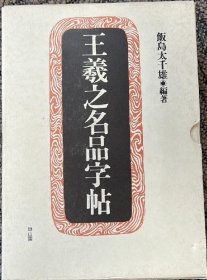 飯島太千雄•編著
王羲之名品字帖